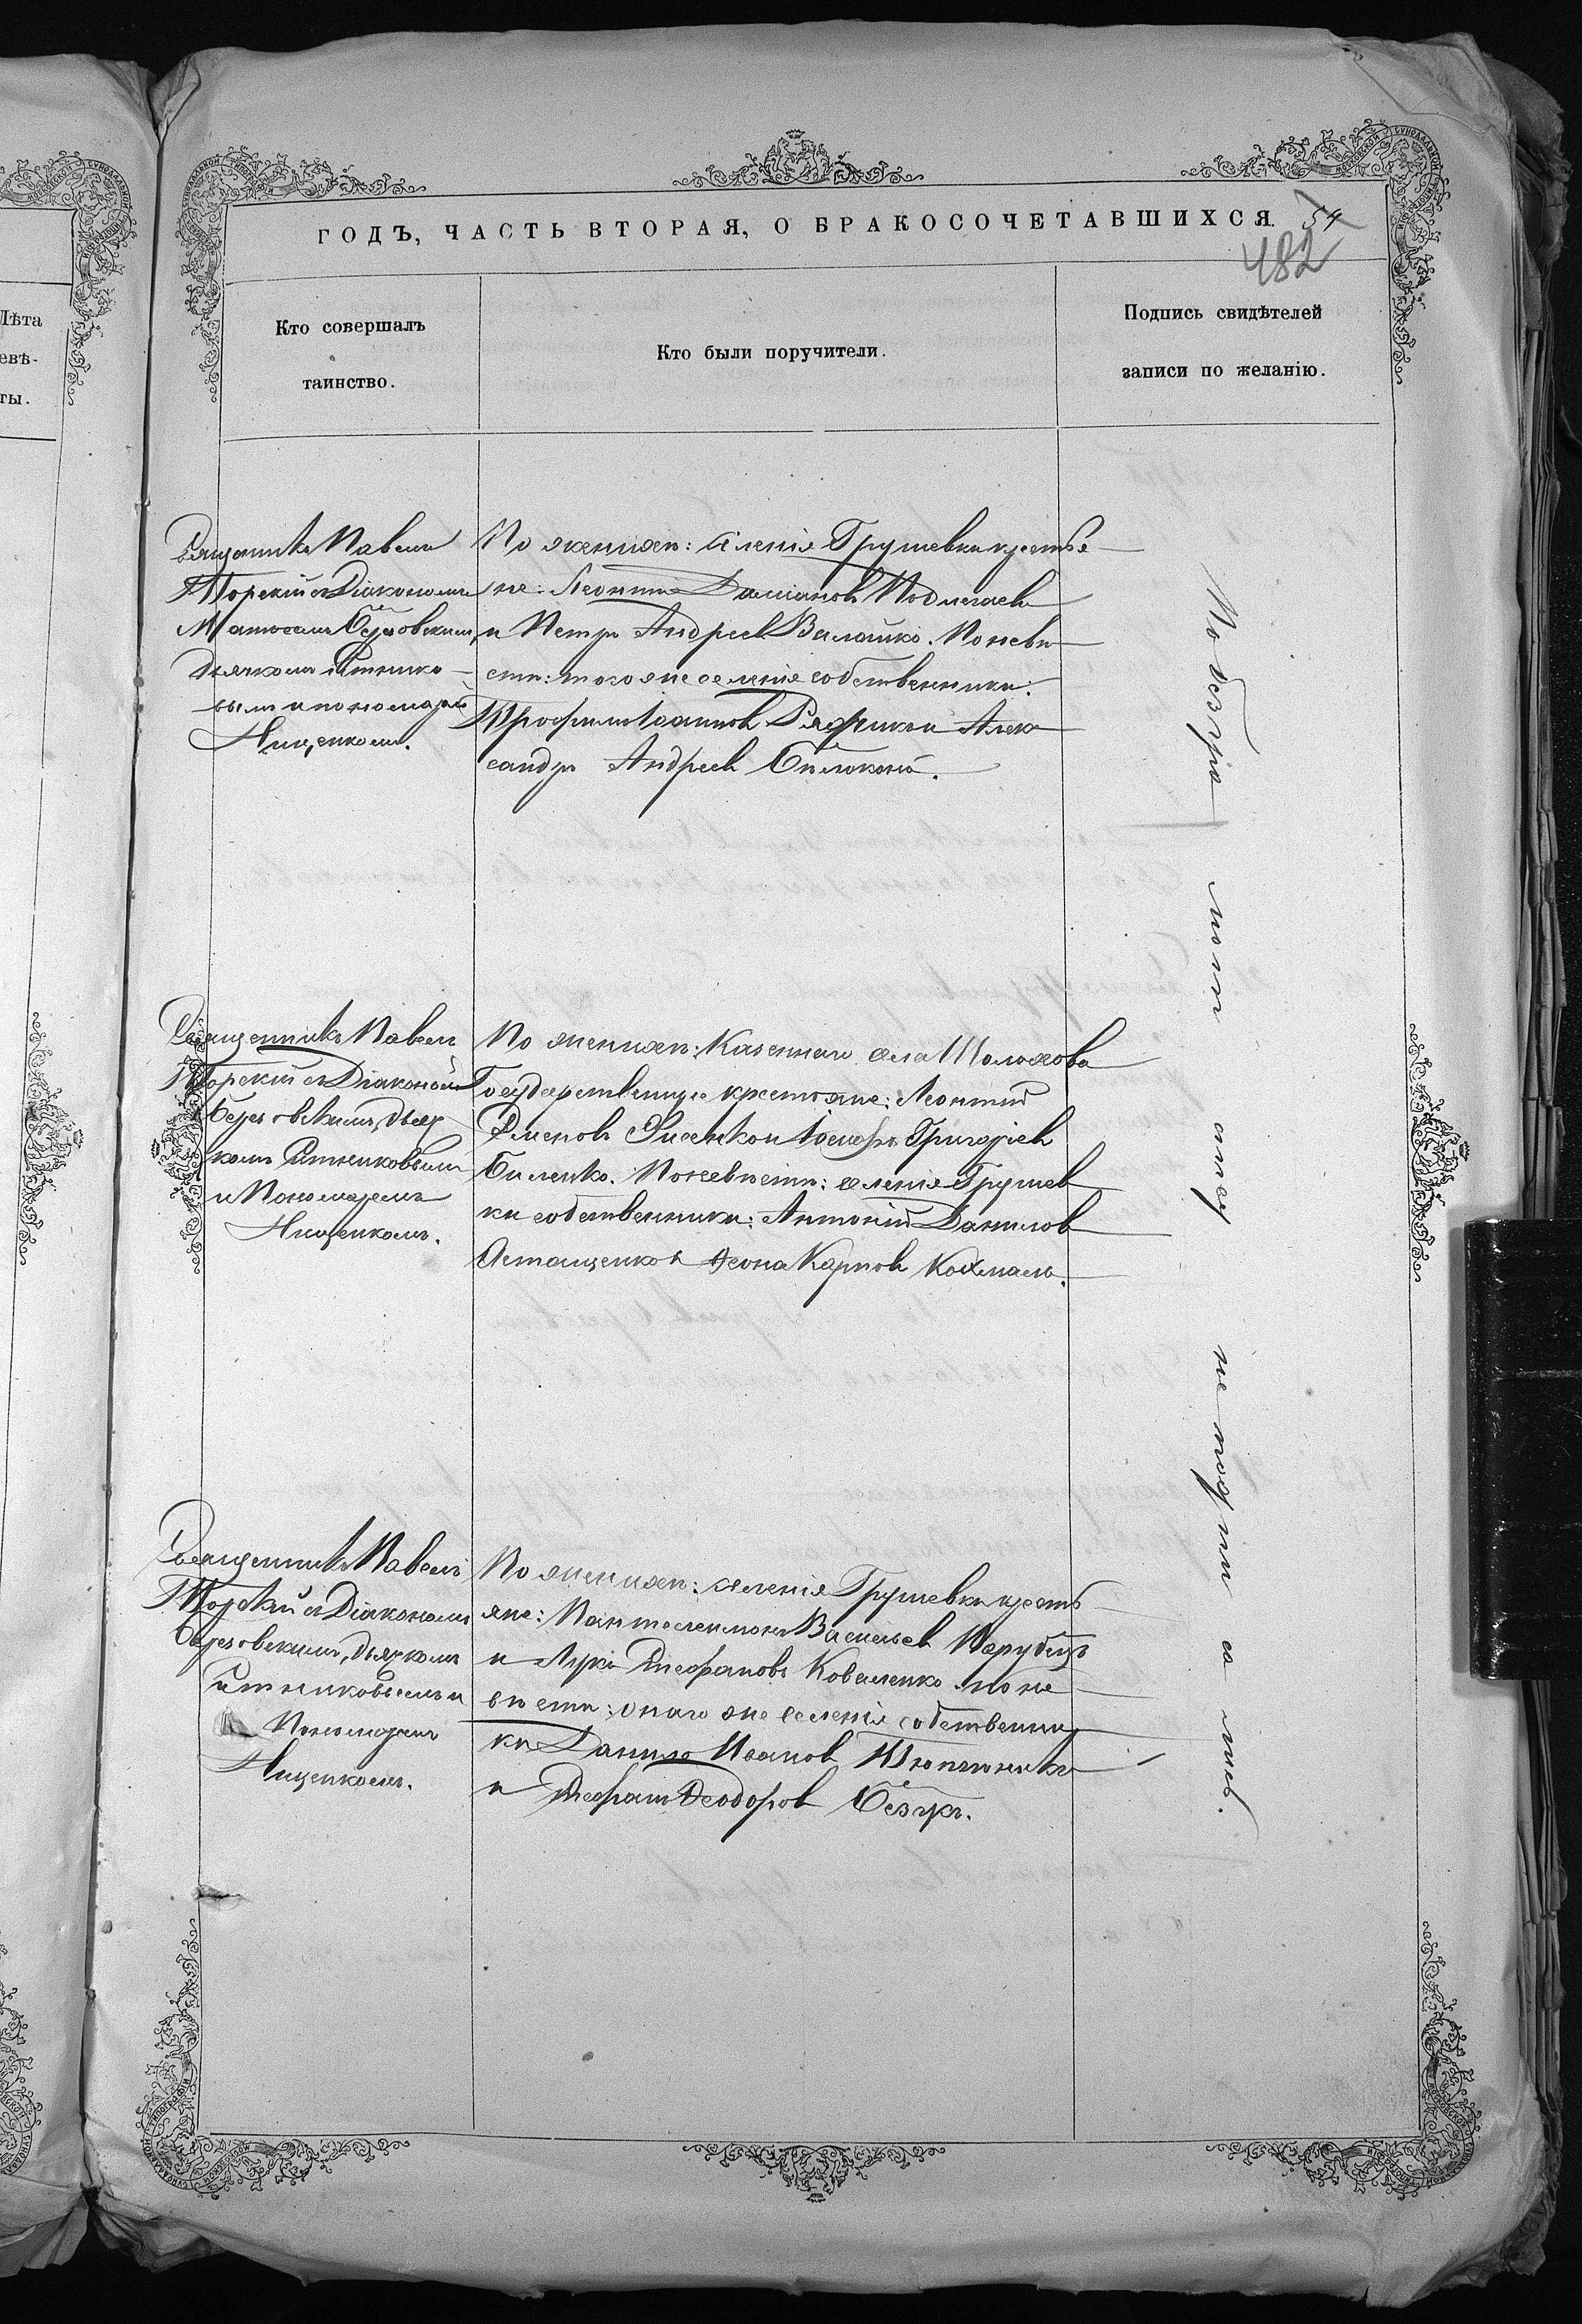 Лѣта
евѣ-
ты.
ГОДЪ, ЧАСТЬ ВТОРАЯ, О БРАКОСОЧЕТАВШИХСЯ. 54
482
Кто совершалъ
таинство.
Кто были поручители.
Подпись свидѣтелей
записи по желанію.
Священникъ Павелъ
Торскій съ Діакономъ
Березовскимъ,
Дьячкомъ Ситнико-
вымъ и пономаремъ
Нищенкомъ.
По жениху: селенія Грушевки крестья
не: Леонтій Даміановъ
и Петръ Андреевъ Валайко. По невѣ
стѣ: того же селенія собственники:
Трофимъ Іоанновъ и Алек
сандръ Андреевъ Билоконь.
Священникъ Павелъ
Торскій съ Діакономъ
Березовскимъ, Дьяч
комъ Ситниковымъ
и Пономаремъ
Нищенкомъ.
По жениху: Казеннаго села Шолохова
Государственные крестьяне: Леонтій
Семеновъ и Іосифъ Григоріевъ
Биленко. По невѣстѣ: селенія Грушев
ки собственники: Антоній Даниловъ
Осташенко и Карповъ
Священникъ Павелъ
Торскій съ Діакономъ
Березовскимъ, Дьячкомъ
Ситниковымъ и
Пономаремъ
Нищенкомъ.
По жениху: селенія Грушевки кресть
яне: Пантелеимонъ Васильевъ
и Лука Стефановъ Коваленко. По не
вѣстѣ: онаго же селенія собственни
ки Данило Ивановъ
и Стефанъ Феодоровъ